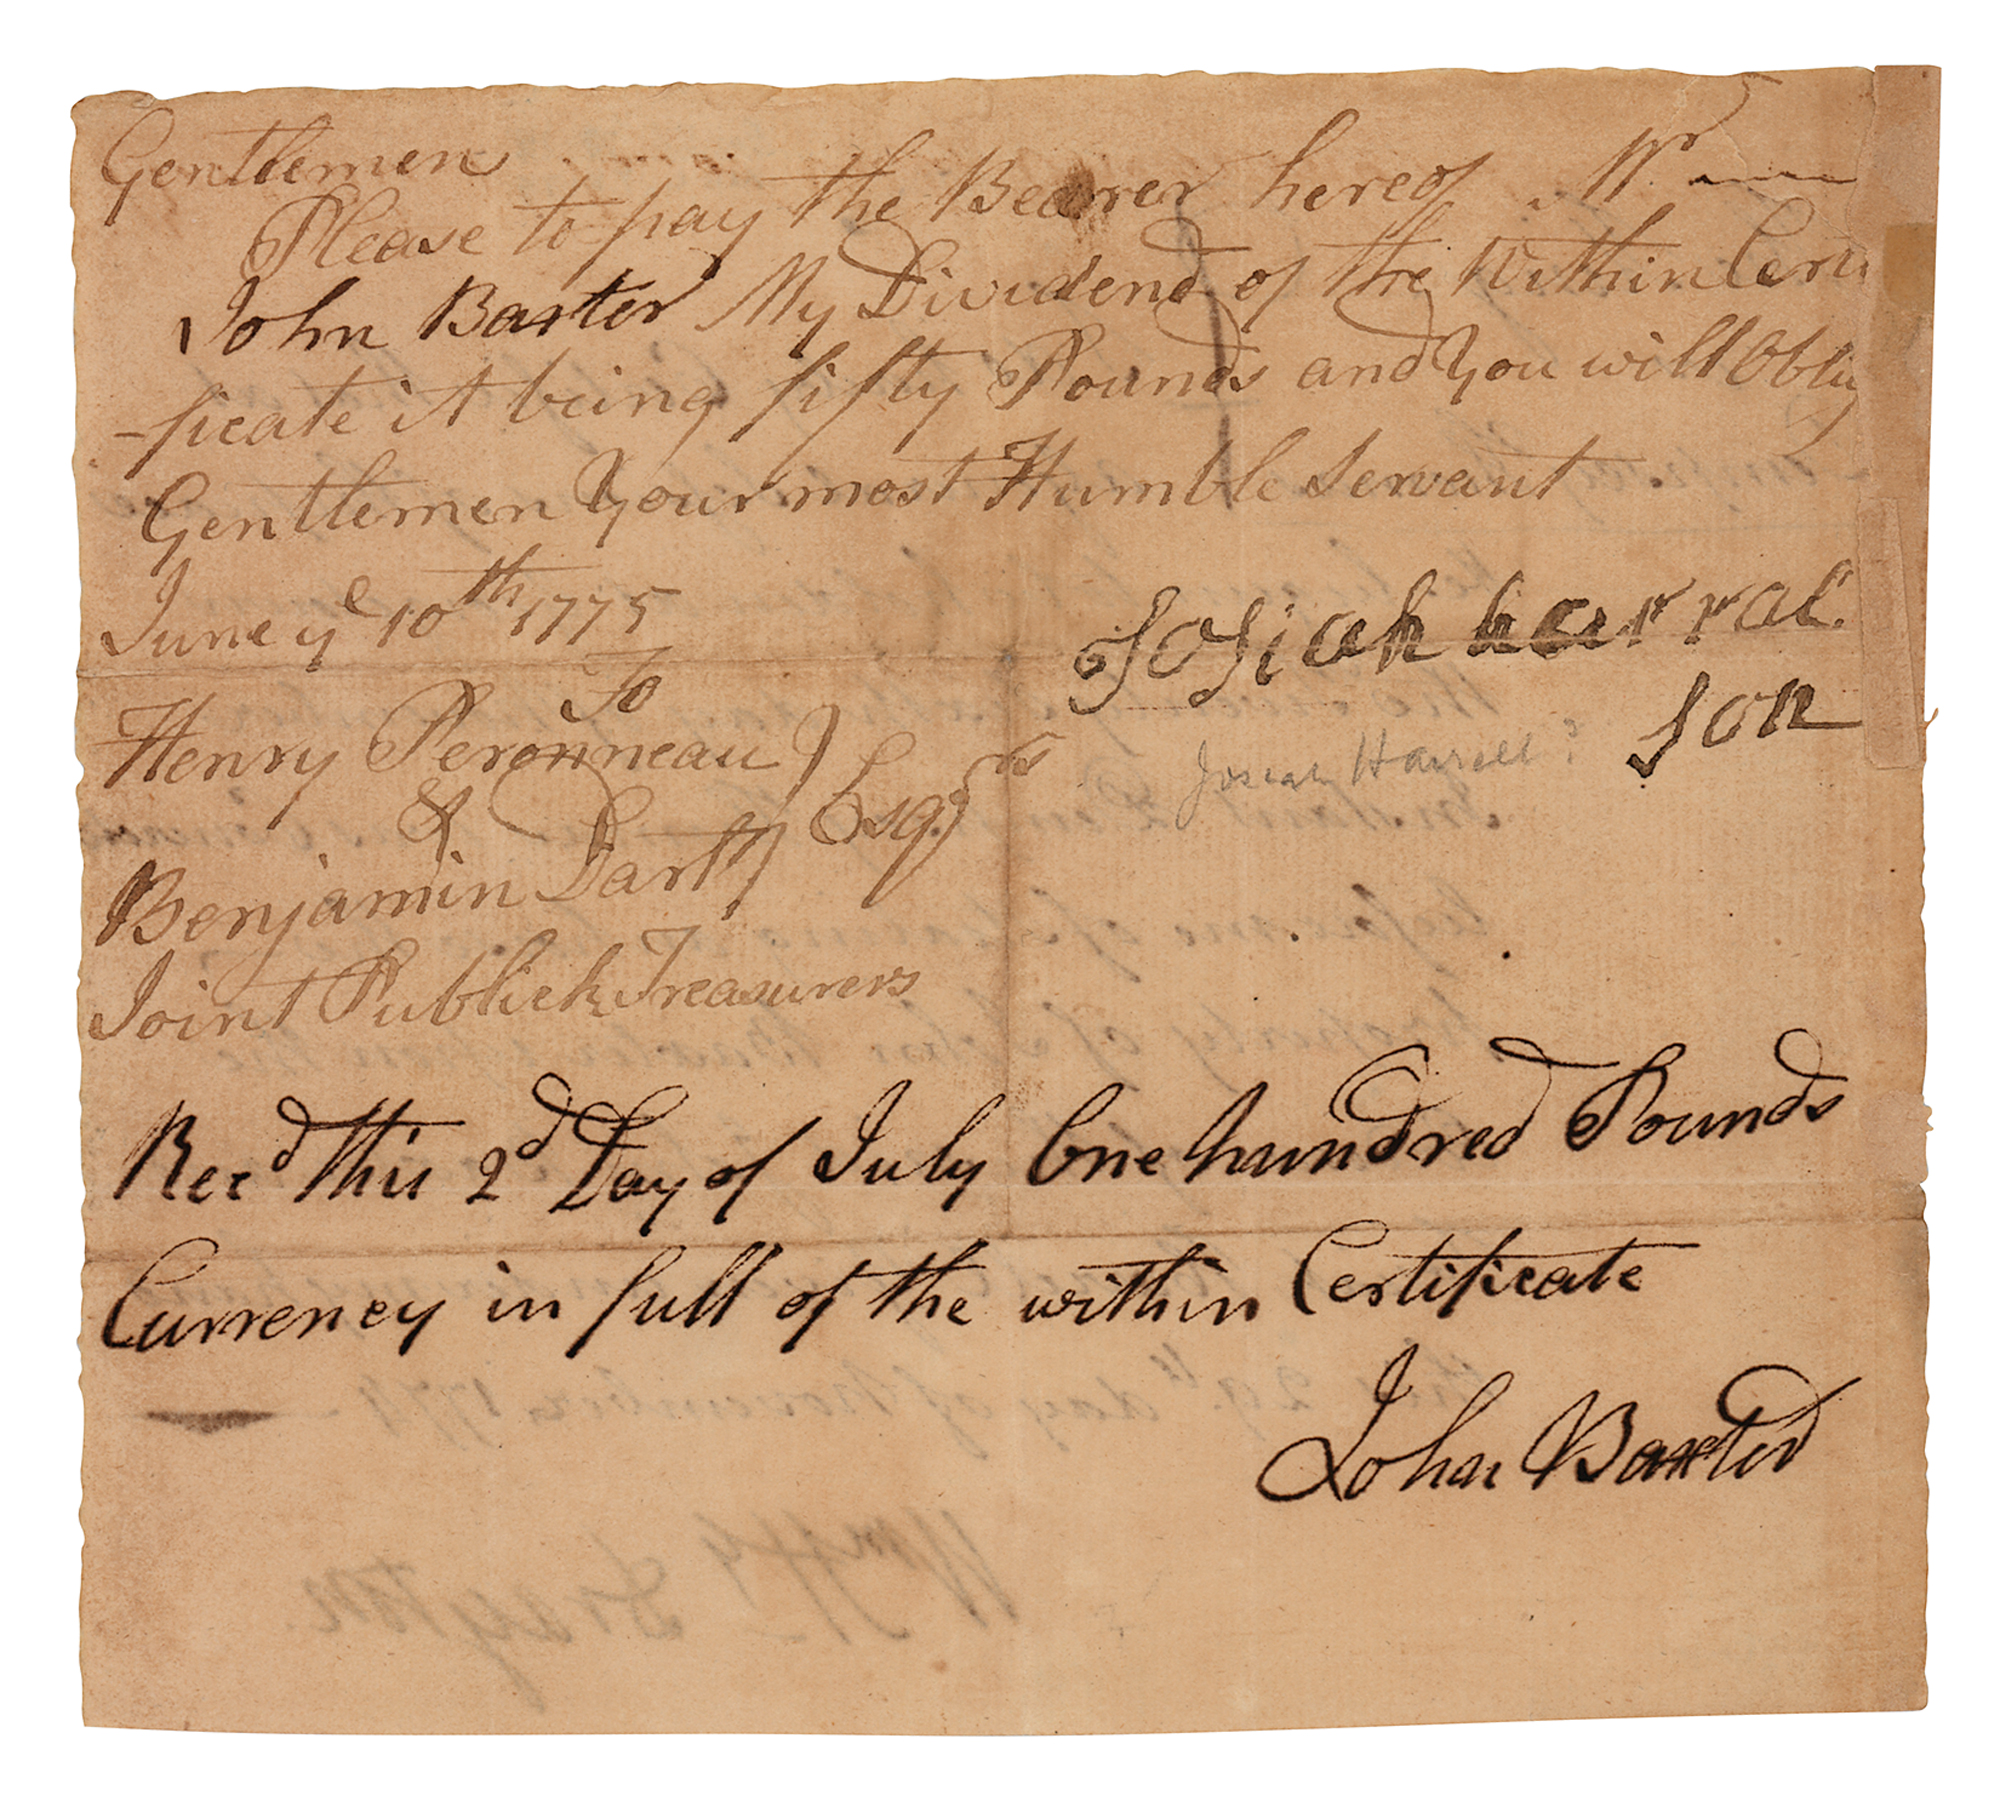 Gentlemen
Please to pay the Bearer hereof Mr
John Baxter My Dividend of the Within Certi
-ficate it being fifty Pounds and You will Oblig
Gentlemen Your most Humble Servant
June ye 10th 1775
Josiah harral
son
To
Josiah Harrell?
Henry Peronneau
&
Esqrs
Benjamin Dart
Joint Publick Treasurers
Recd this 2d Day of July One hundred Pounds
Currency in full of the within Certificate
John Baxter